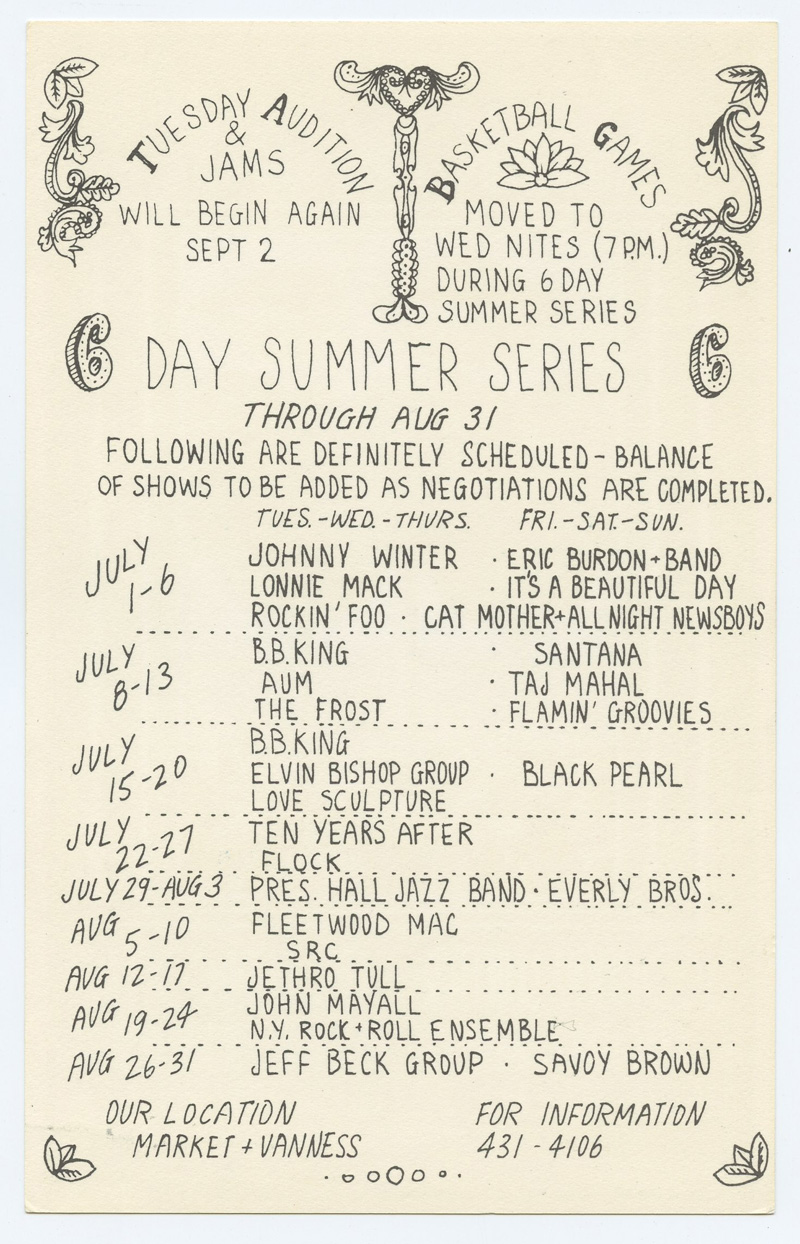 TUESDAY AUDITION
&
JAMS
WILL BEGIN AGAIN
SEPT 2
BASKETBALL GAMES
MOVED TO
WED NITES (7 P.M.)
DURING 6 DAY
SUMMER SERIES
6 DAY SUMMER SERIES 6
THROUGH AUG 31
FOLLOWING ARE DEFINITELY SCHEDULED - BALANCE
OF SHOWS TO BE ADDED AS NEGOTIATIONS ARE COMPLETED.
TUES.-WED.-THURS. FRI.-SAT.-SUN.
JULY 1-6
JOHNNY WINTER · ERIC BURDON + BAND
LONNIE MACK · IT'S A BEAUTIFUL DAY
ROCKIN' FOO · CAT MOTHER + ALL NIGHT NEWSBOYS
JULY 8-13
B.B. KING · SANTANA
AUM · TAJ MAHAL
THE FROST · FLAMIN' GROOVIES
JULY 15-20
B.B. KING
ELVIN BISHOP GROUP · BLACK PEARL
LOVE SCULPTURE
JULY 22-27
TEN YEARS AFTER
FLOCK
JULY 29-AUG 3 PRES. HALL JAZZ BAND · EVERLY BROS.
AUG 5-10
FLEETWOOD MAC
SRC
AUG 12-17 JETHRO TULL
AUG 19-24
JOHN MAYALL
N.Y. ROCK + ROLL ENSEMBLE
AUG 26-31 JEFF BECK GROUP · SAVOY BROWN
OUR LOCATION
MARKET + VANNESS
FOR INFORMATION
431-4106